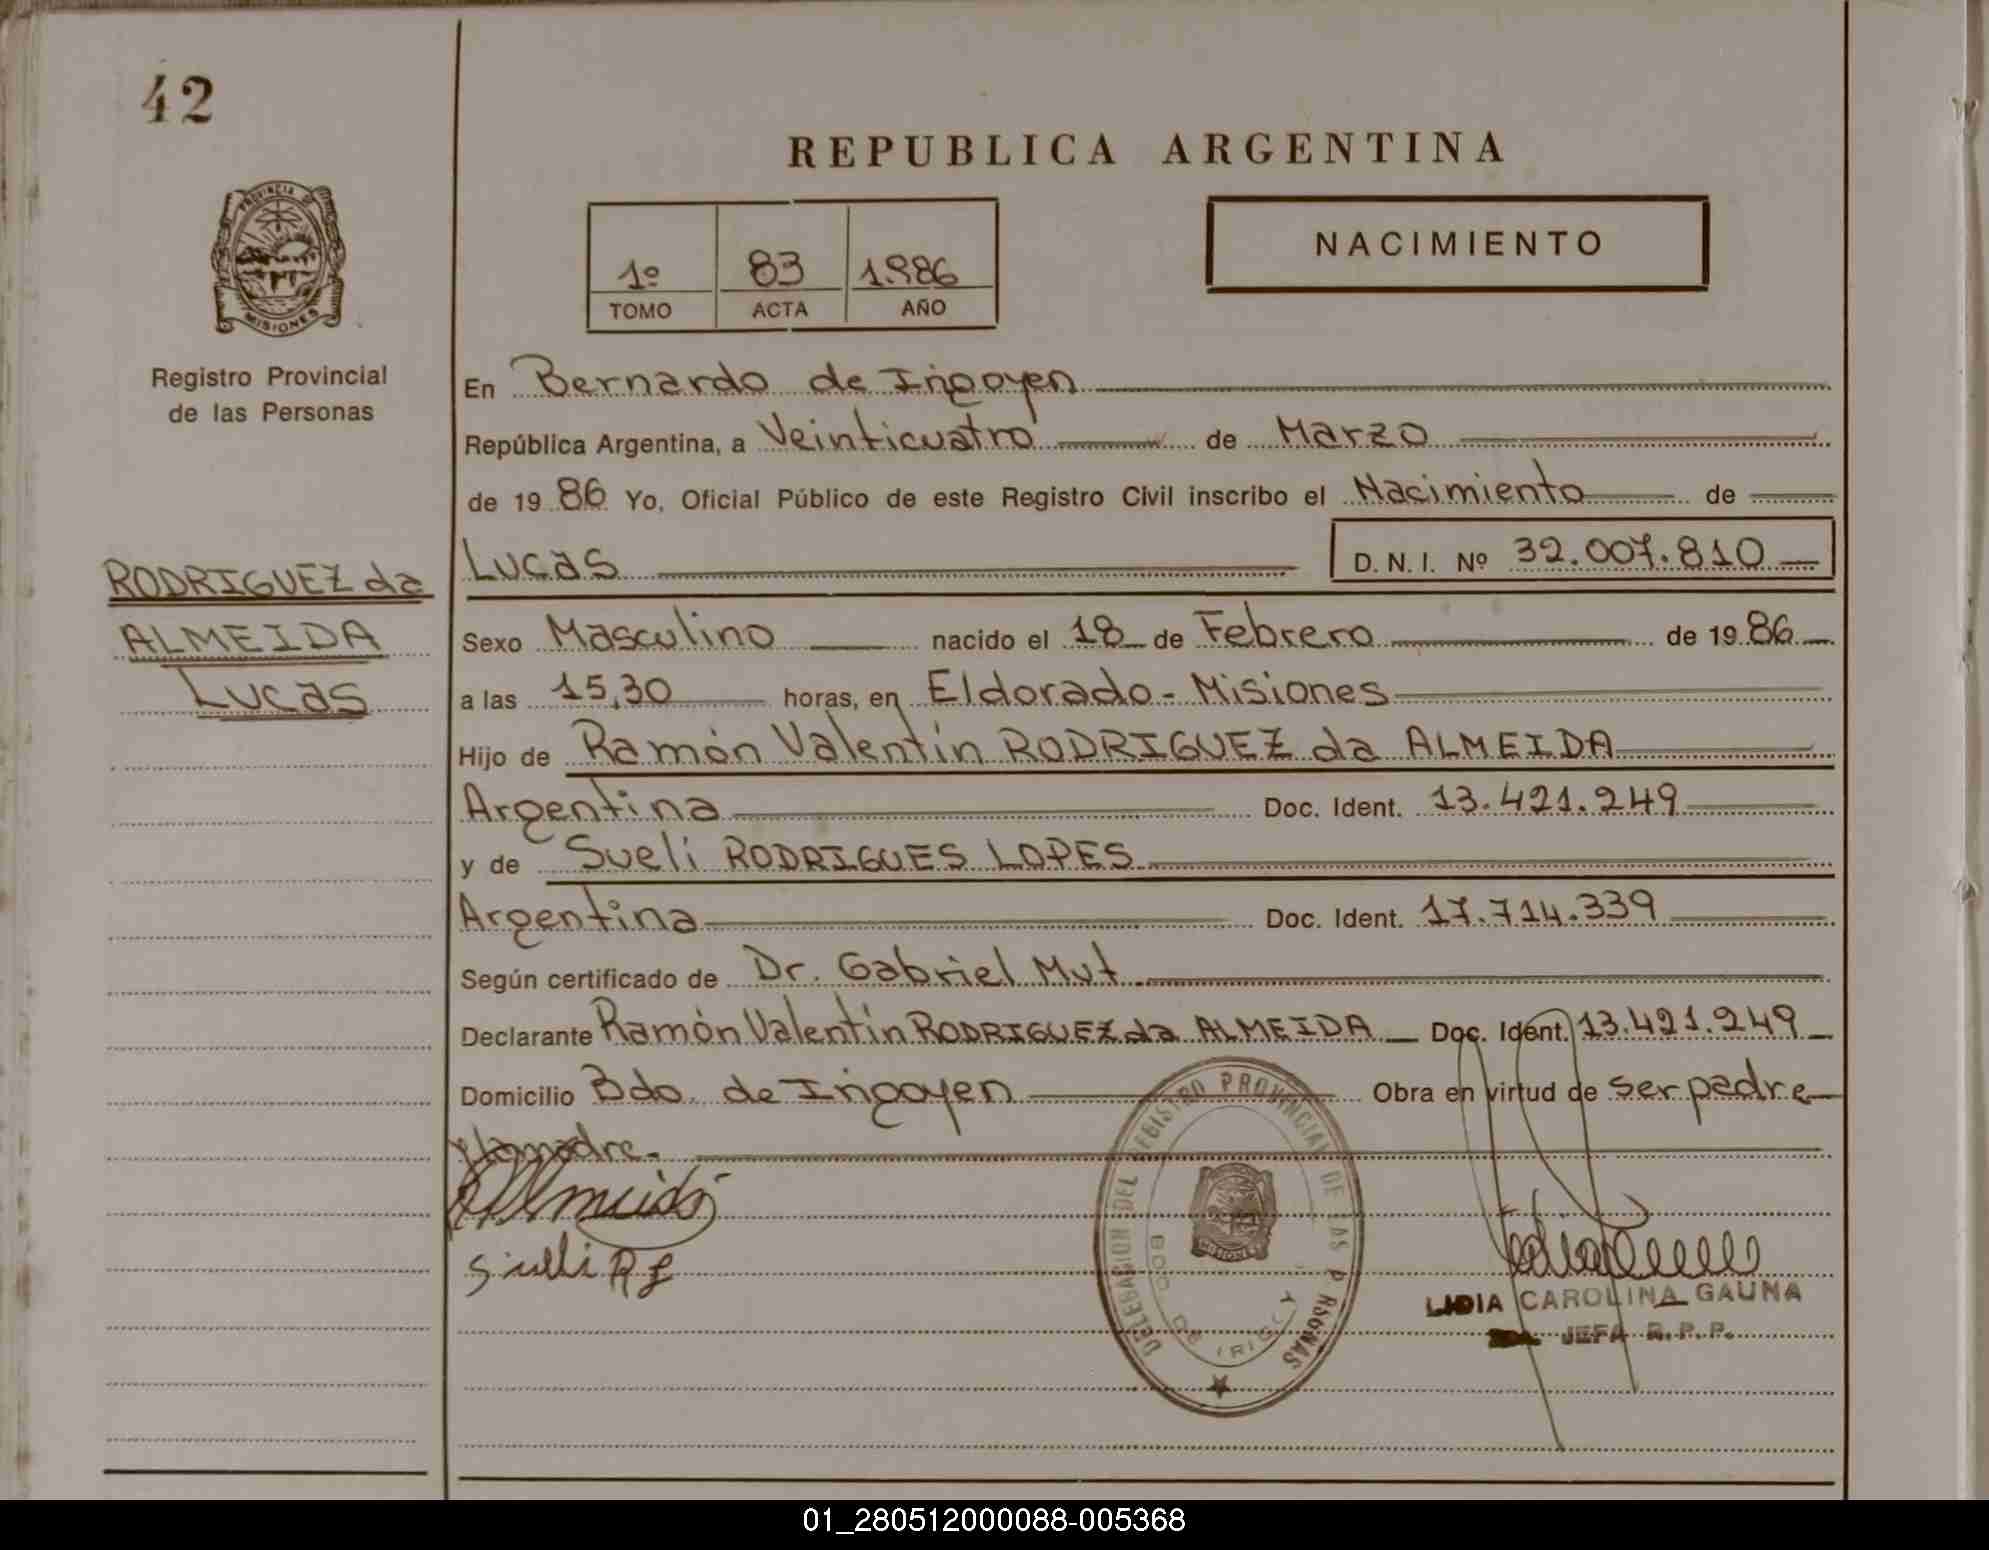 42
REPUBLICA ARGENTINA
PROVINCIA DE
MISIONES
1º 83 1986
TOMO ACTA AÑO
NACIMIENTO
Registro Provincial
de las Personas
En Bernardo de Irigoyen
República Argentina, a Veinticuatro de Marzo
de 1986 Yo, Oficial Público de este Registro Civil inscribo el Nacimiento de
Lucas D. N. I. Nº 32.007.810
RODRIGUEZ da
ALMEIDA
Lucas
Sexo Masculino nacido el 18 de Febrero de 1986
a las 15,30 horas, en Eldorado - Misiones
Hijo de Ramón Valentín RODRIGUEZ da ALMEIDA
Argentina Doc. Ident. 13.421.249
y de Sueli RODRIGUES LOPES
Argentina Doc. Ident. 17.714.339
Según certificado de Dr. Gabriel Mut
Declarante Ramón Valentín RODRIGUEZ da ALMEIDA Doc. Ident. 13.421.249
Domicilio Bdo. de Irigoyen Obra en virtud de ser padre
y la madre.
DELEGACION DEL REGISTRO PROVINCIAL DE LAS PERSONAS
BDO DE IRIGOY
MISIONES
LIDIA CAROLINA GAUNA
JEFA R.P.P.
01_280512000088-005368